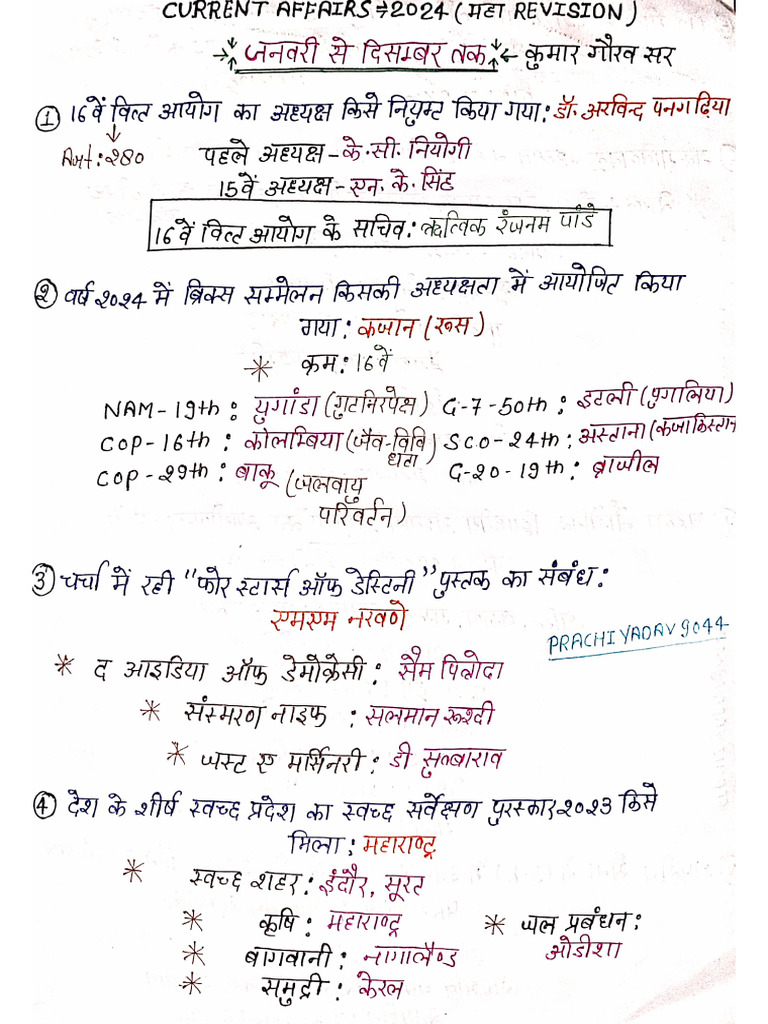 CURRENT AFFAIRS ⇒ 2024 (महा REVISION)
जनवरी से दिसम्बर तक ← कुमार गौरव सर
① 16वें वित्त आयोग का अध्यक्ष किसे नियुक्त किया गया: डॉ. अरविन्द पनगढ़िया
Art: 280 पहले अध्यक्ष - के.सी. नियोगी
15वें अध्यक्ष - एन. के. सिंह
16वें वित्त आयोग के सचिव: ऋत्विक रंजनम पांडे
② वर्ष 2024 में ब्रिक्स सम्मेलन किसकी अध्यक्षता में आयोजित किया
गया: कजान (रूस)
* क्रम: 16वें
NAM-19th: युगांडा (गुटनिरपेक्ष) G-7-50th: इटली (पुगालिया)
COP-16th: कोलम्बिया (जैव-विविधता) SCO-24th: अस्ताना (कजाकिस्तान
COP-29th: बाकू (जलवायु G-20-19th: ब्राजील
परिवर्तन)
③ चर्चा में रही "फोर स्टार्स ऑफ डेस्टिनी" पुस्तक का संबंध:
एमएम नरवणे
PRACHIYADAV9044
* द आइडिया ऑफ डेमोक्रेसी: सैम पित्रोदा
* संस्मरण नाइफ: सलमान रुश्दी
* जस्ट ए मर्सिनरी: डी सुब्बाराव
④ देश के शीर्ष स्वच्छ प्रदेश का स्वच्छ सर्वेक्षण पुरस्कार 2023 किसे
मिला: महाराष्ट्र
* स्वच्छ शहर: इंदौर, सूरत
* कृषि: महाराष्ट्र * जल प्रबंधन:
* बागवानी: नागालैण्ड ओडीशा
* समुद्री: केरल